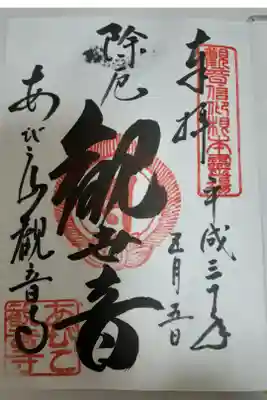 奉拝
平成三十年
五月五日
除厄
観世音
あびこ山観音寺
観音信仰根本霊場